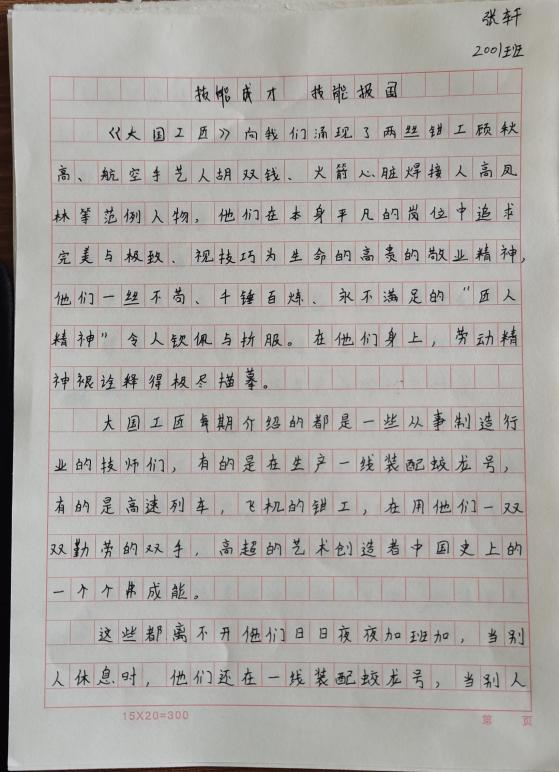 张轩
2001班
技能成才 技能报国
《大国工匠》向我们涌现了两丝钳工顾秋
高、航空手艺人胡双钱、火箭心脏焊接人高凤
林等范例人物，他们在本身平凡的岗位中追求
完美与极致、视技巧为生命的高贵的敬业精神，
他们一丝不苟、千锤百炼、永不满足的“匠人
精神”令人钦佩与折服。在他们身上，劳动精
神被诠释得极尽描摹。
大国工匠每期介绍的都是一些从事制造行
业的技师们，有的是在生产一线装配蛟龙号，
有的是高速列车，飞机的钳工，在用他们一双
双勤劳的双手，高超的艺术创造者中国史上的
一个个弗成能。
这些都离不开他们日日夜夜加班加，当别
人休息时，他们还在一线装配蛟龙号，当别人
15X20=300
第 页